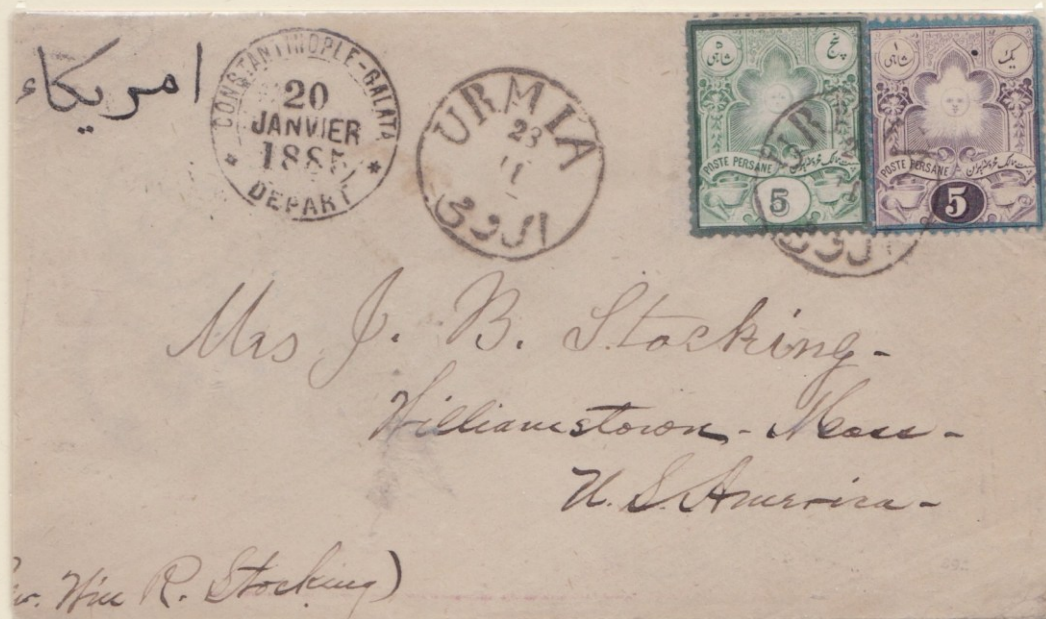 امریکاء
CONSTANTINOPLE-GALATA
20
JANVIER
188
* DEPART *
URMIA
23
11
ارومی
۵ شاهی
پنج
POSTE PERSANE
5
۱ شاهی
یک
POSTE PERSANE
5
Mrs J. B. Stocking-
Williamstown - Mass -
U. S. America -
Wm R. Stocking)